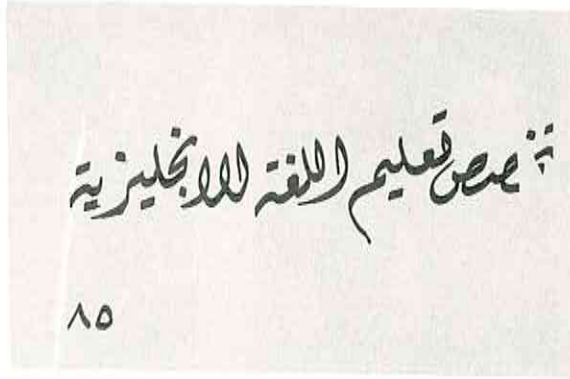 تخصص تعليم اللغة الانجليزية
٨٥